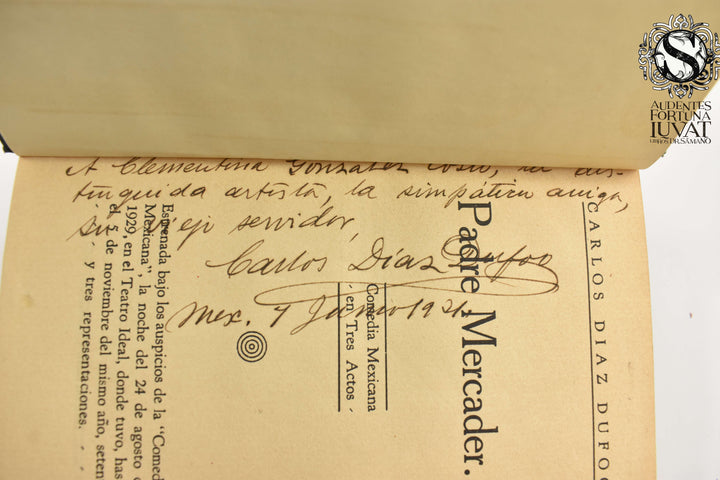 A Clementina Gonzalez Cosio, la dis-
tinguida artista, la simpática amiga,
su viejo servidor,
Carlos Díaz Dufoo
Mex. 7 Junio 192
CARLOS DIAZ DUFOO
Padre Mercader.
Comedia Mexicana
en Tres Actos
Estrenada bajo los auspicios de la "Comed
Mexicana", la noche del 24 de agosto
1929, en el Teatro Ideal, donde tuvo, has
el 5 de noviembre del mismo año, seten
y tres representaciones.
S
AUDENTES
FORTUNA
IUVAT
LIBROS DR. SÁMANO